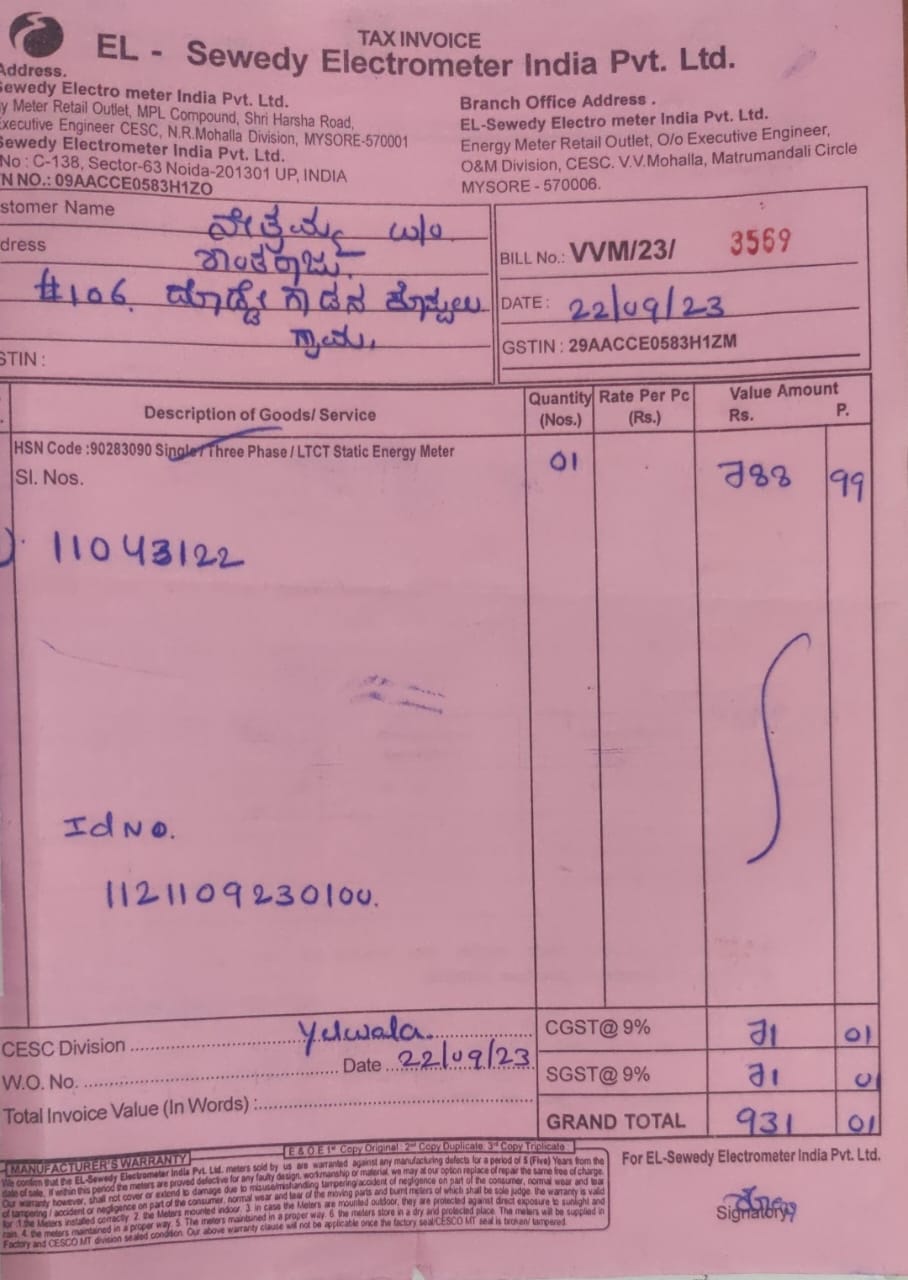 TAX INVOICE
EL - Sewedy Electrometer India Pvt. Ltd.
Address.
Sewedy Electro meter India Pvt. Ltd.
y Meter Retail Outlet, MPL Compound, Shri Harsha Road,
Executive Engineer CESC, N.R.Mohalla Division, MYSORE-570001
Sewedy Electrometer India Pvt. Ltd.
No : C-138, Sector-63 Noida-201301 UP, INDIA
N NO.: 09AACCE0583H1ZO
Branch Office Address .
EL-Sewedy Electro meter India Pvt. Ltd.
Energy Meter Retail Outlet, O/o Executive Engineer,
O&M Division, CESC. V.V.Mohalla, Matrumandali Circle
MYSORE - 570006.
stomer Name W/o
dress
#106.
ಗ್ರಾಮ.
STIN :
BILL No.: VVM/23/ 3569
DATE : 22/09/23
GSTIN : 29AACCE0583H1ZM
Description of Goods/ Service
Quantity (Nos.)
Rate Per Pc (Rs.)
Value Amount
Rs. P.
HSN Code :90283090 Single / Three Phase / LTCT Static Energy Meter
01 788 99
Sl. Nos.
11043122
Id No.
1121109230100.
CESC Division Yelwala.
Date 22/09/23
W.O. No.
Total Invoice Value (In Words) :
CGST@ 9% 71 01
SGST@ 9% 71 01
GRAND TOTAL 931 01
E & O E 1st Copy Original : 2nd Copy Duplicate 3rd Copy Triplicate
MANUFACTURER'S WARRANTY
We confirm that the EL-Sewedy Electrometer India Pvt. Ltd. meters sold by us are warranted against any manufacturing defects for a period of 5 (Five) Years from the
date of sale. If within this period the meters are proved defective for any faulty design, workmanship or material, we may at our option replace of repair the same free of charge.
Our warranty however, shall not cover or extend to damage due to misuse/mishandling tampering/accident of negligence on part of the consumer, normal wear and tear
of tampering / accident or negligence on part of the consumer, normal wear and tear of the moving parts and burnt meters of which shall be sole judge. the warranty is valid
for :1.the Meters installed correctly 2. the Meters mounted indoor. 3. in case the Meters are mounted outdoor, they are protected against direct exposure to sunlight and
rain. 4. the meters maintained in a proper way. 5. The meters maintained in a proper way. 6. the meters store in a dry and protected place. The meters will be supplied in
Factory and CESCO MT division sealed condition. Our above warranty clause will not be applicable once the factory seal/CESCO MT seal is broken/ tampered.
For EL-Sewedy Electrometer India Pvt. Ltd.
Signatory